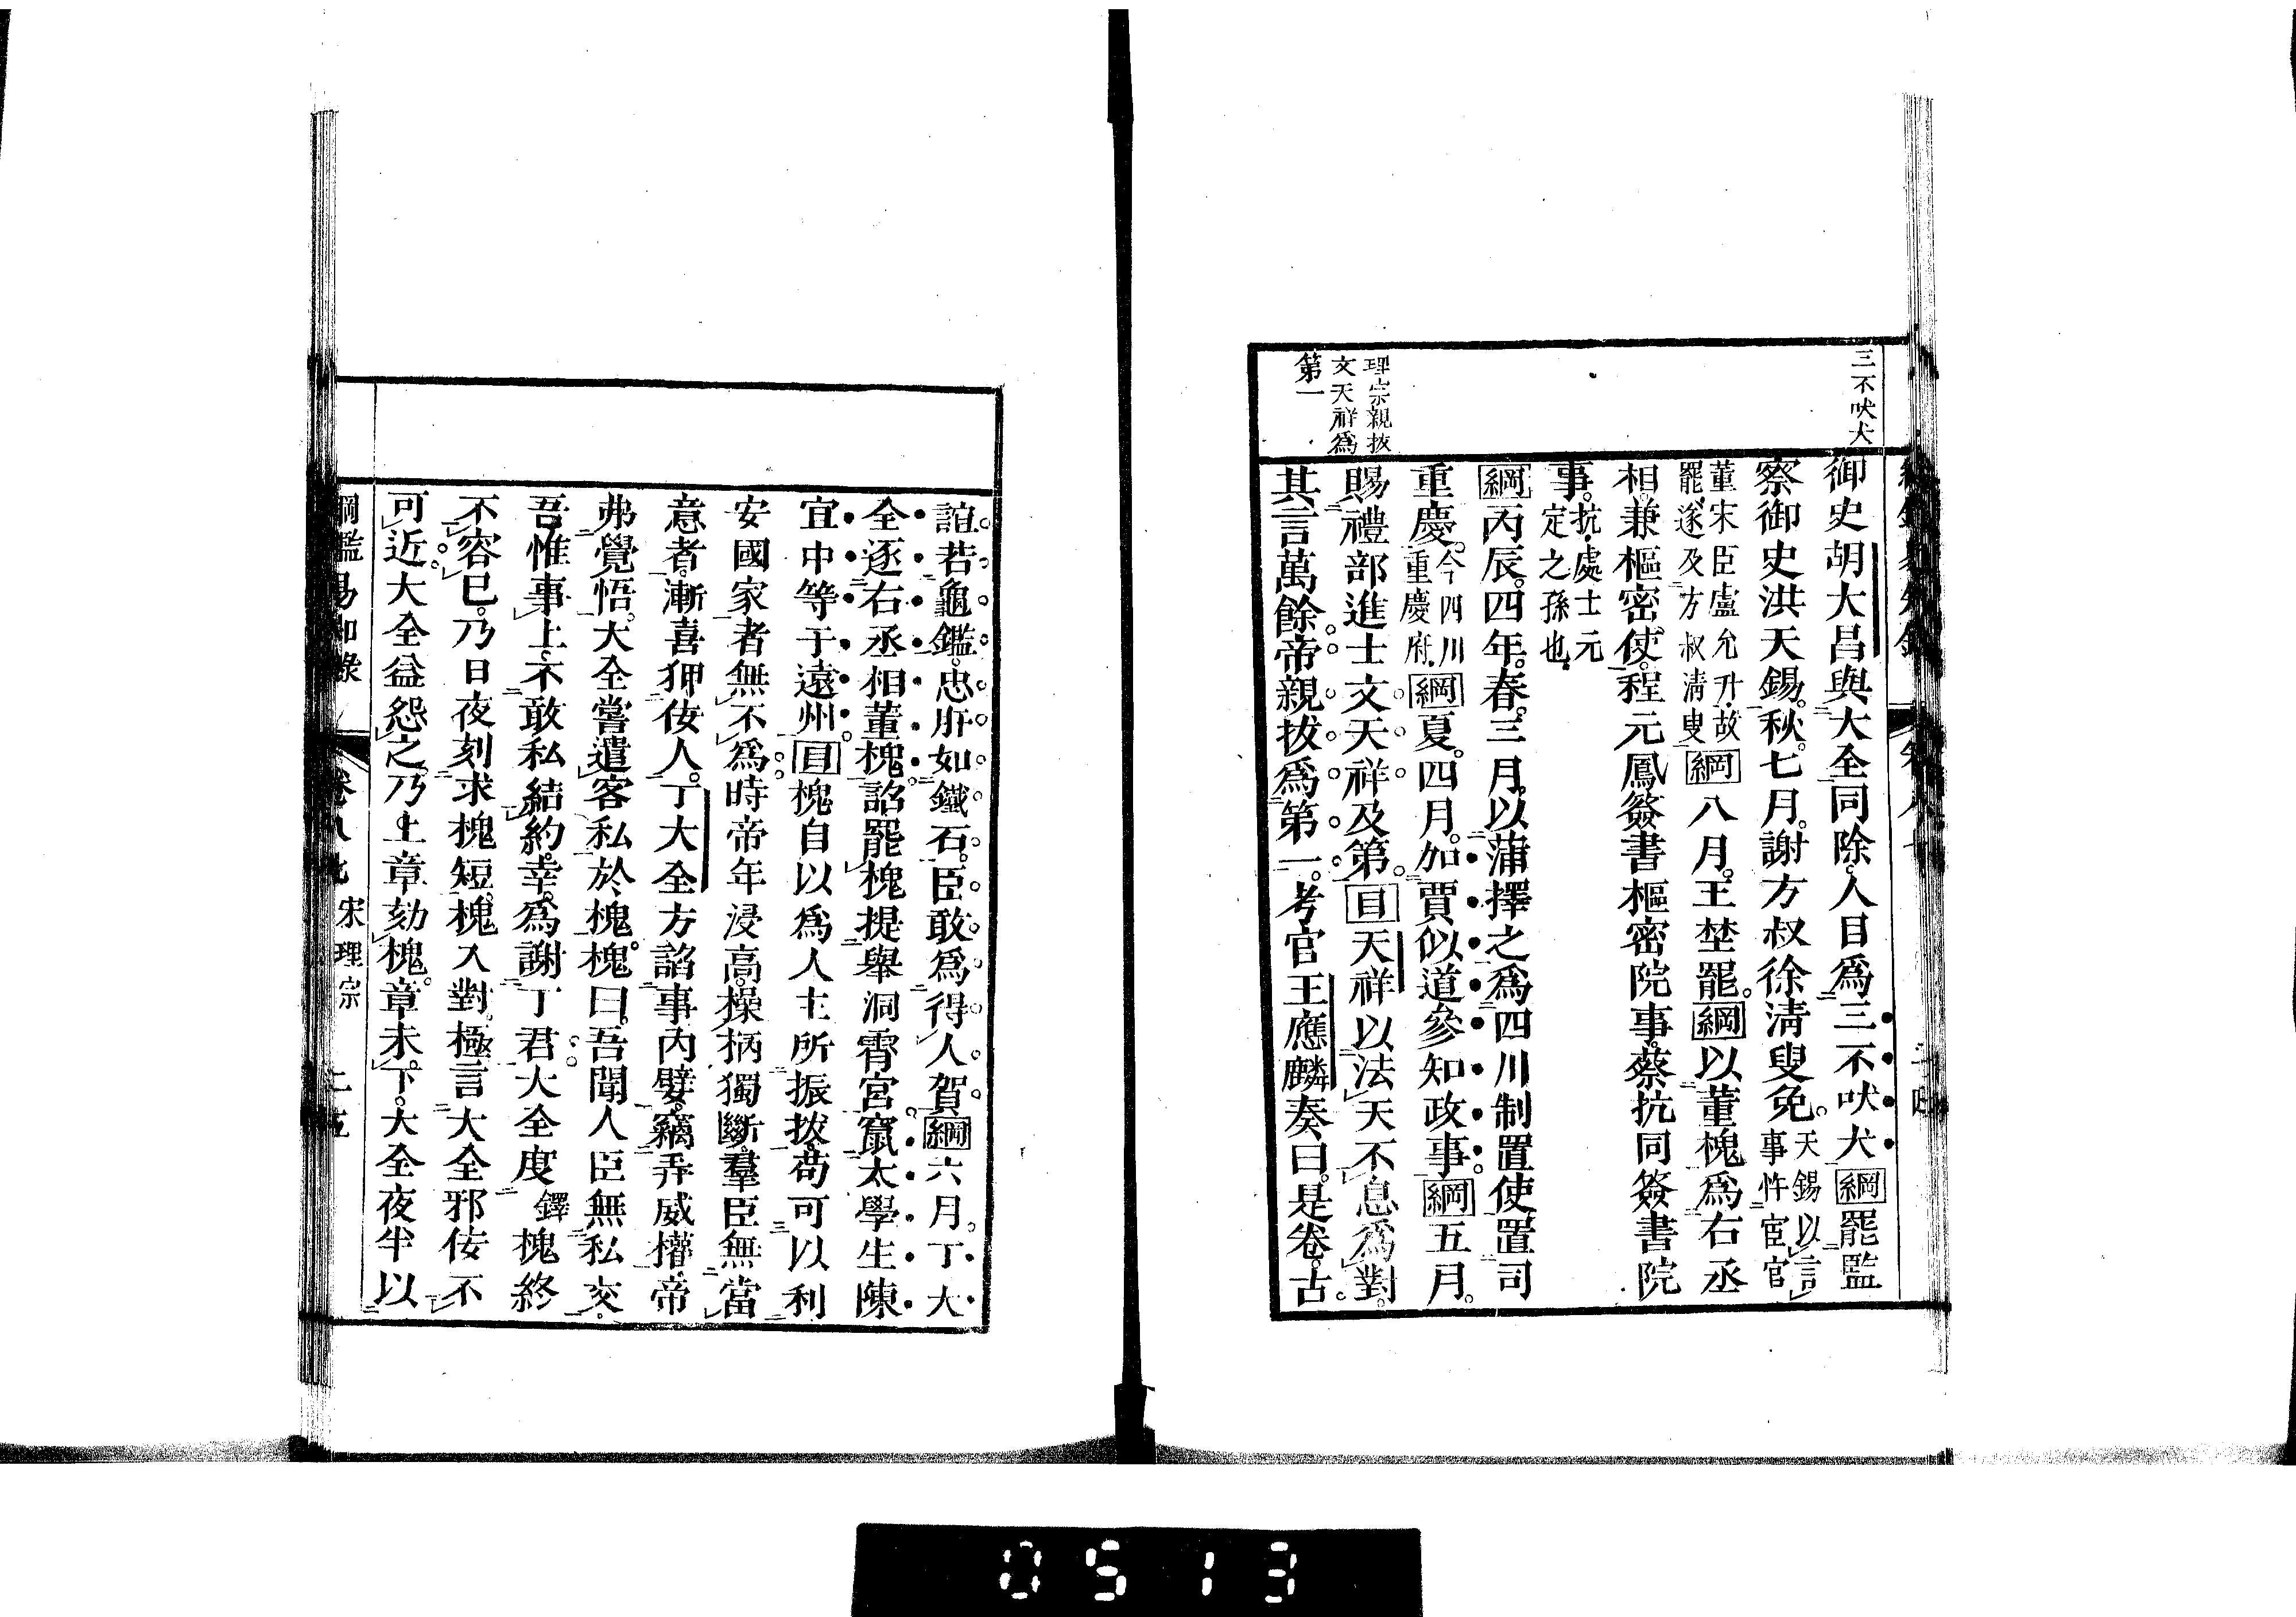 三不吠犬
御史胡大昌與大全同除人目爲三不吠犬綱罷監
察御史洪天錫秋七月謝方叔徐淸叟免天錫以言事忤宦官
董宋臣盧允升故罷遂及方叔淸叟綱八月王埜罷綱以董槐爲右丞
相兼樞密使程元鳳簽書樞密院事蔡抗同簽書院
事抗處士元定之孫也
綱丙辰四年春三月以蒲擇之爲四川制置使置司
重慶今四川重慶府綱夏四月加賈似道參知政事綱五月
理宗親拔
文天祥爲
第一
賜禮部進士文天祥及第目天祥以法天不息爲對
其言萬餘帝親拔爲第一考官王應麟奏曰是卷古
誼若龜鑑忠肝如鐵石臣敢爲得人賀綱六月丁大
全逐右丞相董槐詔罷槐提舉洞霄宮竄太學生陳
宜中等于遠州目槐自以爲人主所振拔苟可以利
安國家者無不爲時帝年浸高操柄獨斷羣臣無當
意者漸喜狎佞人丁大全方諂事內嬖竊弄威權帝
弗覺悟大全嘗遣客私於槐槐曰吾聞人臣無私交
吾惟事上不敢私結約幸爲謝丁君大全度鐸槐終
不容已乃日夜刻求槐短槐入對極言大全邪佞不
可近大全益怨之乃上章劾槐章未下大全夜半以
綱鑑易知錄 卷八九 宋理宗 二五
0513